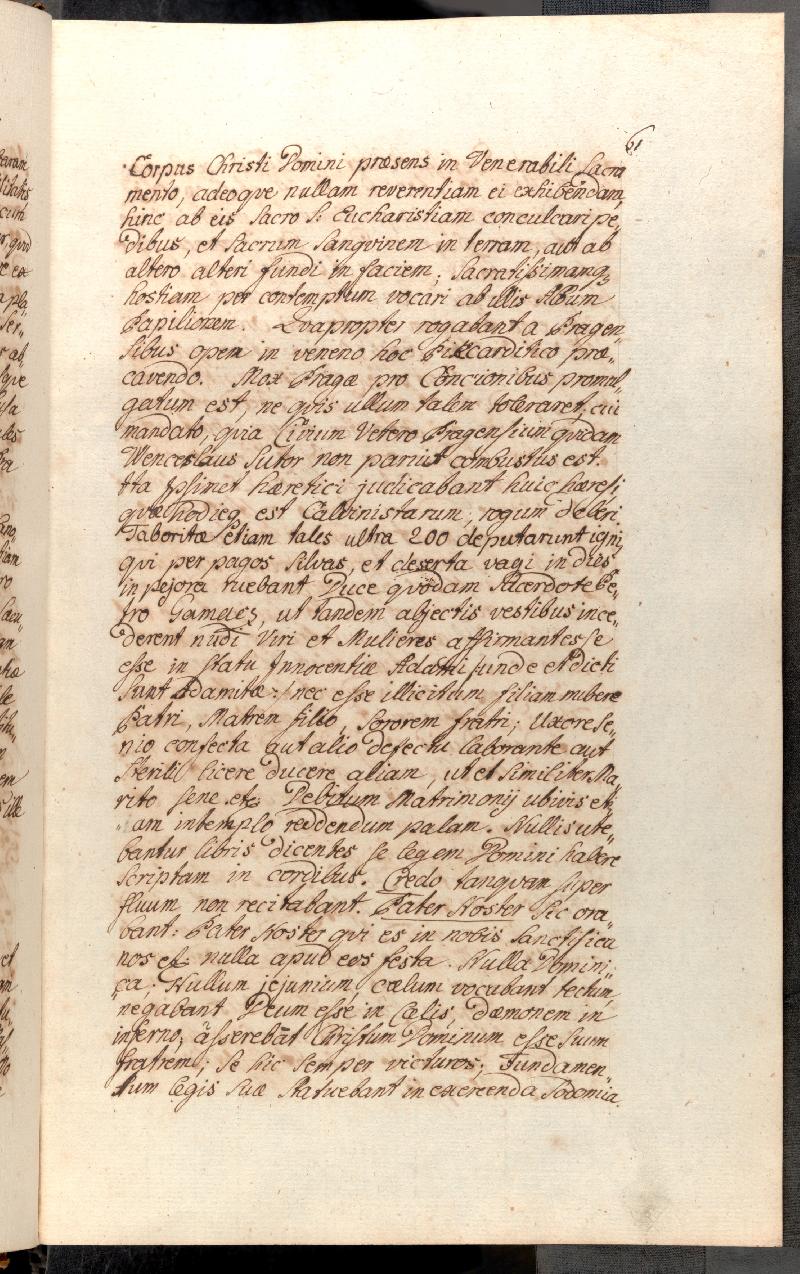 61
Corpus Christi Domini præsens in Venerabili Sacra
mento, adeoqve nullam reverentiam ei exhibendam,
hinc ab eis Sacro S: Eucharistiam conculcari pe„
dibus, et Sacrum Sangvinem in terram, aut ab
altero alteri fundi in faciem; Sacratissimamq₃
hostiam per contemptum vocari ab illis Album
Papilionem. Qvapropter rogabant a Pragen„
sibus opem in veneno hoc Pikcarditico præ„
cavendo. Mox Pragæ pro Concionibus promul„
gatum est, ne qvis ullum talem toleraret, cui
mandato, qvia Civium Vetero Pragensium qvidam
Wenceslaus Sutor non paruit combustus est.
Ita ipsimet hæretici judicabant huic hæresi
qvæ hodieq est Calvinistarum, rogum deberi.
Taboritæ etiam tales ultra 200 deputarunt igni,
qvi per pagos silvas, et deserta vagi in dies
in pejora ruebant Duce qvodam Sacerdote Pe„
tro Gamaes, ut tandem abjectis vestibus ince„
derent nudi Viri et Mulieres affirmantes se
esse in statu Innocentiæ Adami /unde et dicti
sunt Adamitæ:/ nec esse illicitum filiam nubere
Patri, Matrem filio, Sororem fratri; Uxore se„
nio confecta aut alio defectu laborante aut
sterili licere ducere aliam, ut et similiter Ma
rito sene etc Debitum Matrimonij ubivis et„
„am in templo reddendum palam. Nullis ute„
bantur libris dicentes se legem Domini habere
scriptam in cordibus. Credo tanqvam super
fluum non recitabant. Pater Noster sic ora„
bant: Pater Noster qvi es in nobis sanctifica
nos etc nulla apud eos festa. Nulla Domini„
ca; Nullum jejunium, cælum vocabant tectum,
negabant Deum esse in Cælis, dæmonem in
inferno, asserebāt Christum Dominum esse suum
fratrem; se hic semper victuros; Fundamen„
tum legis suæ statuebant in exercenda Sodomia.